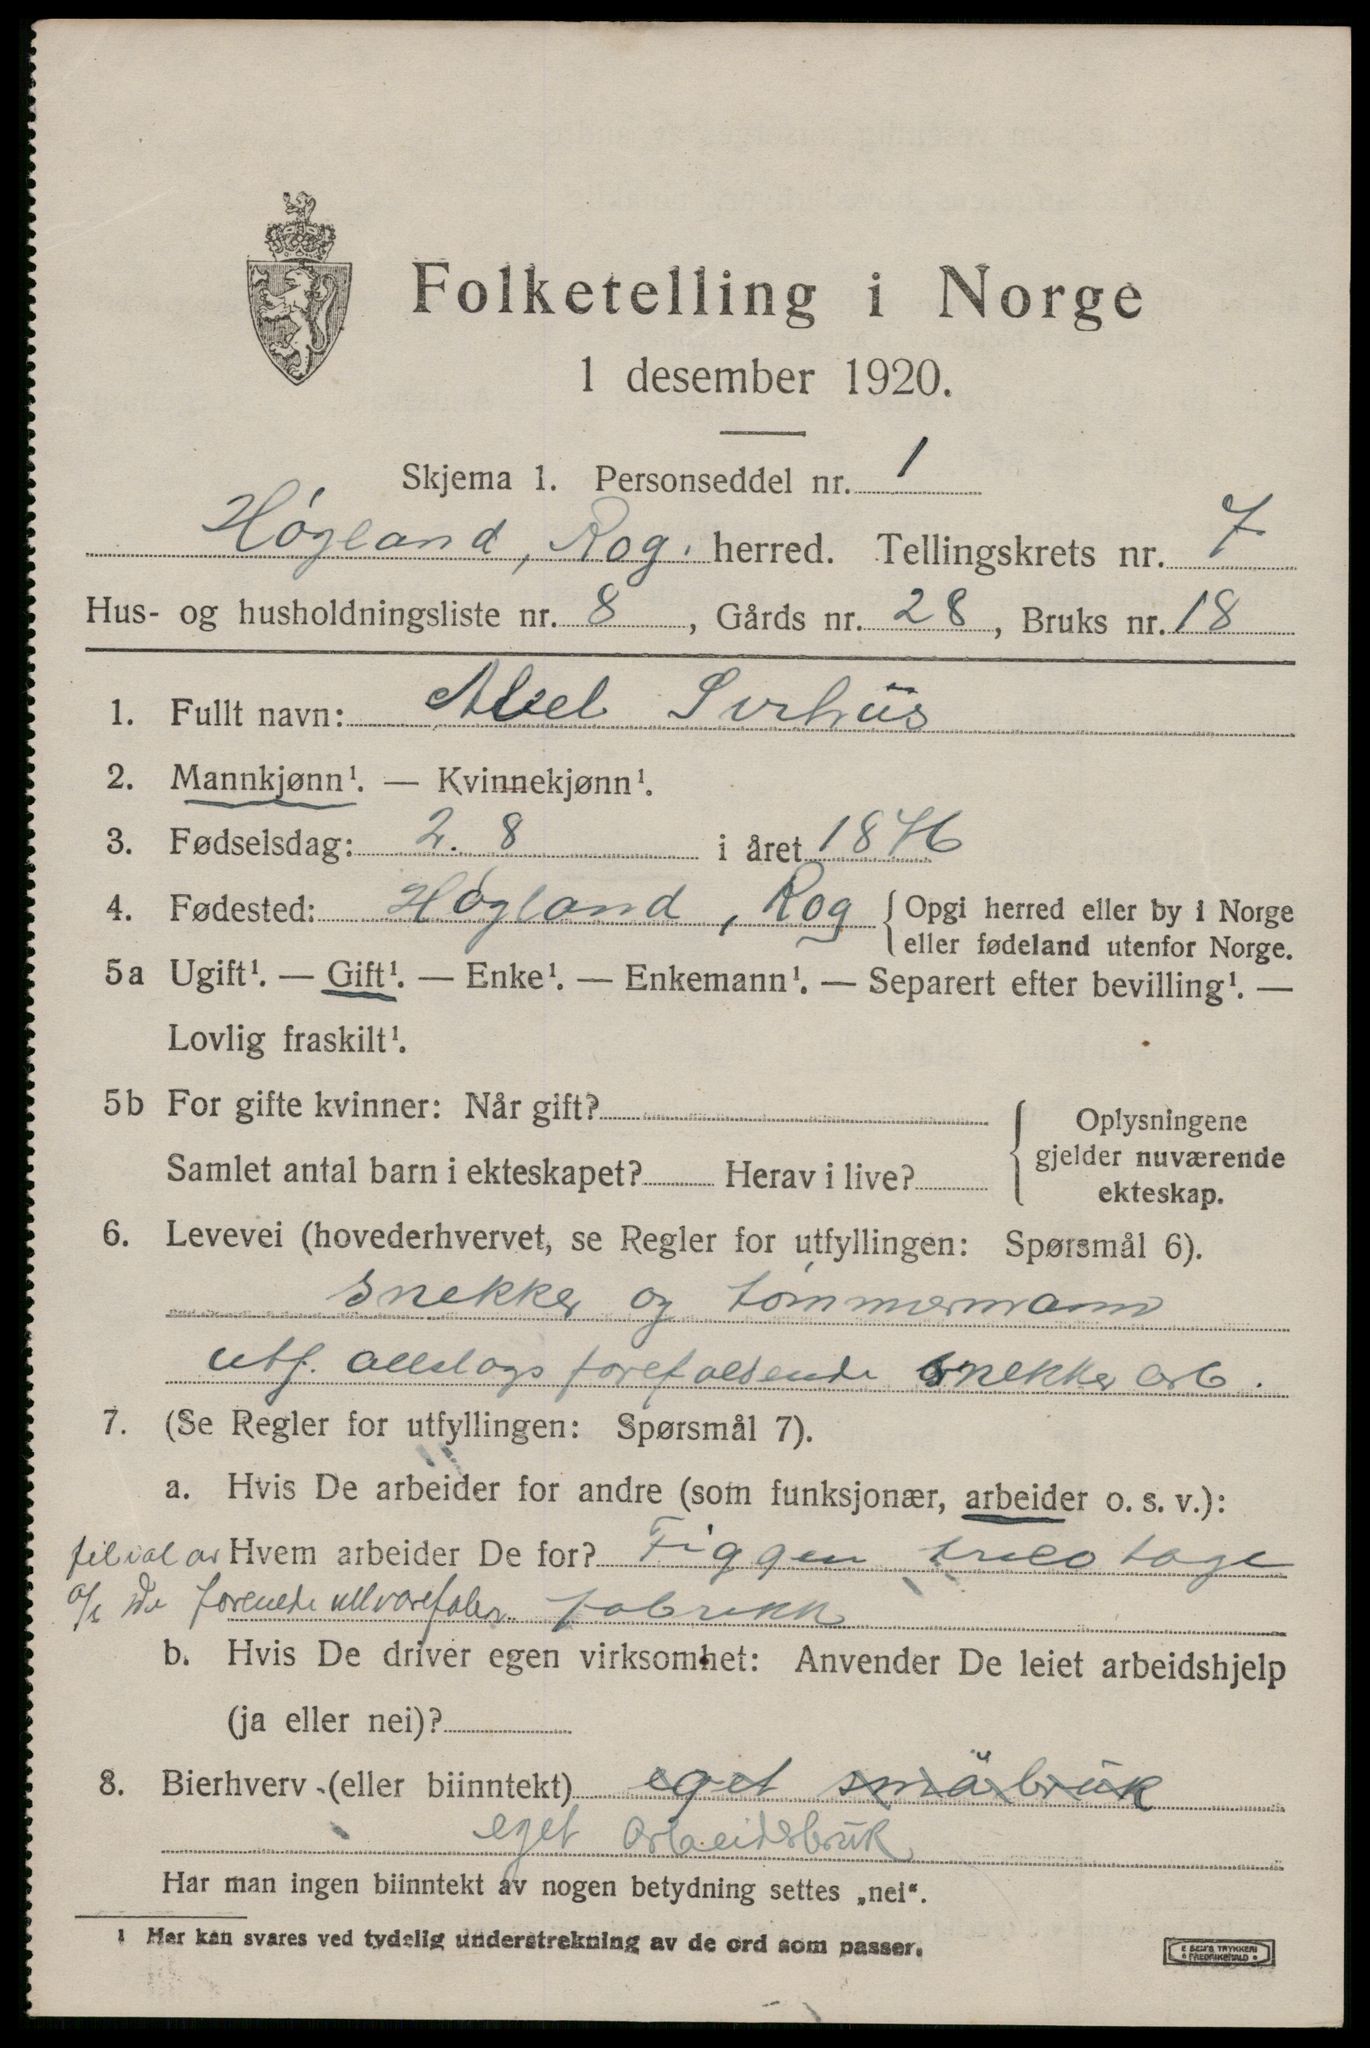 Folketelling i Norge
1 desember 1920.
Skjema 1. Personseddel nr. 1
Høgland, Rog. herred. Tellingskrets nr. 7
Hus- og husholdningsliste nr. 8, Gårds nr. 28, Bruks nr. 18
1. Fullt navn: Abel Svihus
2. Mannkjønn¹. — Kvinnekjønn¹.
3. Fødselsdag: 2. 8 i året 1876
4. Fødested: Høgland, Rog { Opgi herred eller by i Norge
eller fødeland utenfor Norge.
5a Ugift¹. — Gift¹. — Enke¹. — Enkemann¹. — Separert efter bevilling¹. —
Lovlig fraskilt¹.
5b For gifte kvinner: Når gift?
Samlet antal barn i ekteskapet? Herav i live?
Oplysningene
gjelder nuværende
ekteskap.
6. Levevei (hovederhvervet, se Regler for utfyllingen: Spørsmål 6).
Snekker og tømmermann
utf. allslags forefallende snekker arb.
7. (Se Regler for utfyllingen: Spørsmål 7).
a. Hvis De arbeider for andre (som funksjonær, arbeider o. s. v.):
filial av Hvem arbeider De for? Figgen tricotage
a/s De forenede ullvarefabr. fabrikk
b. Hvis De driver egen virksomhet: Anvender De leiet arbeidshjelp
(ja eller nei)?
8. Bierhverv (eller biinntekt) eget småbruk
eget arbeidsbruk
Har man ingen biinntekt av nogen betydning settes „nei“.
1 Her kan svares ved tydelig understrekning av de ord som passer.
E SEM'S TRYKKERI
FREDRIKSHALD